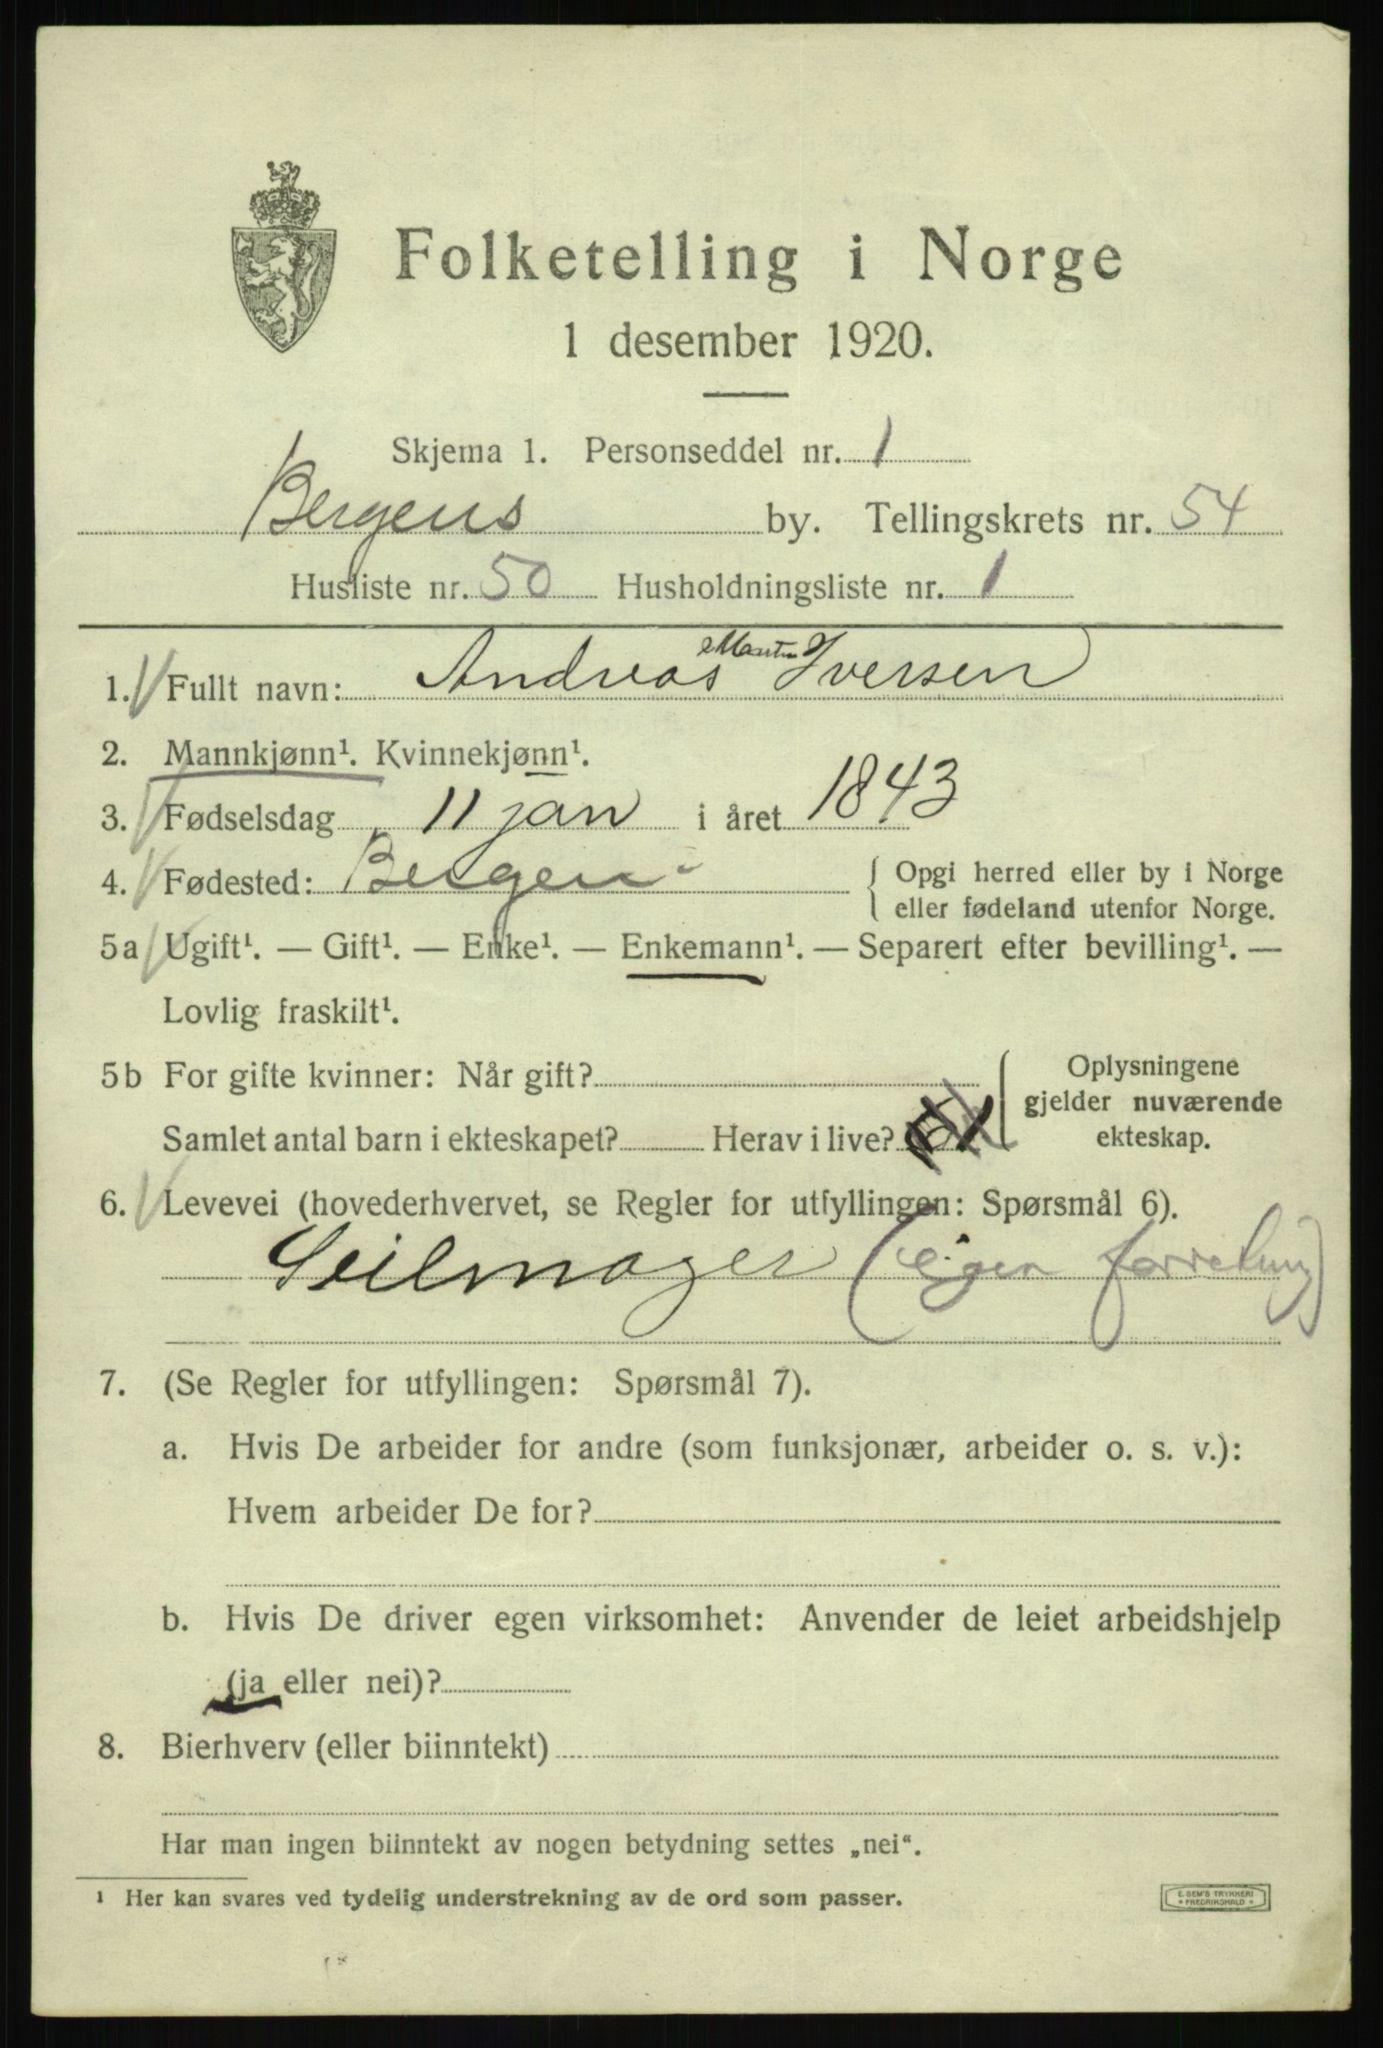 Folketelling i Norge
1 desember 1920.
Skjema 1. Personseddel nr. 1
Bergens by. Tellingskrets nr. 54
Husliste nr. 50 Husholdningsliste nr. 1
1. Fullt navn: Andreas Martin Iversen
2. Mannkjønn¹. Kvinnekjønn¹.
3. Fødselsdag 11 jan i året 1843
4. Fødested: Bergen { Opgi herred eller by i Norge
eller fødeland utenfor Norge.
5a Ugift¹. — Gift¹. — Enke¹. — Enkemann¹. — Separert efter bevilling¹. —
Lovlig fraskilt¹.
5b For gifte kvinner: Når gift? { Oplysningene
gjelder nuværende
ekteskap.
Samlet antal barn i ekteskapet? Herav i live?
6. Levevei (hovederhvervet, se Regler for utfyllingen: Spørsmål 6).
Seilmager (egen forretning)
7. (Se Regler for utfyllingen: Spørsmål 7).
a. Hvis De arbeider for andre (som funksjonær, arbeider o. s. v.):
Hvem arbeider De for?
b. Hvis De driver egen virksomhet: Anvender de leiet arbeidshjelp
(ja eller nei)?
8. Bierhverv (eller biinntekt)
Har man ingen biinntekt av nogen betydning settes „nei“.
¹ Her kan svares ved tydelig understrekning av de ord som passer.
E. SEM'S TRYKKERI
FREDRIKSHALD